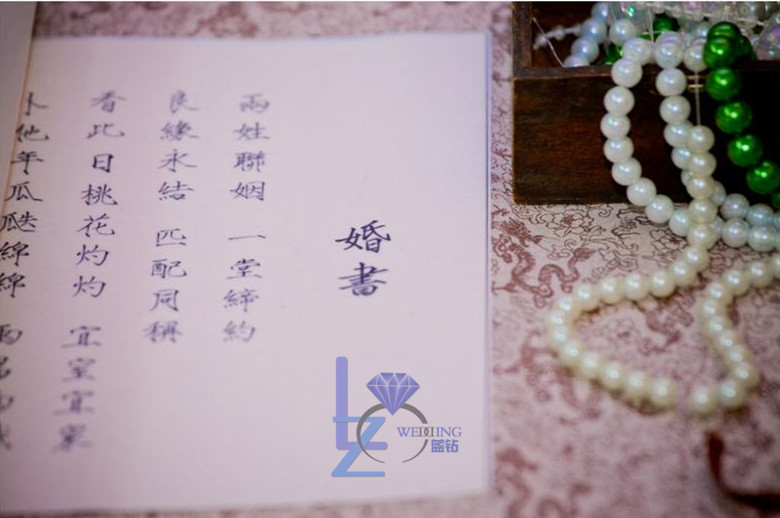 婚書
兩姓聯姻 一堂締約
良緣永結 匹配同稱
看此日桃花灼灼 宜室宜家
卜他年瓜瓞綿綿
LZ
WEDDING
蓝钻